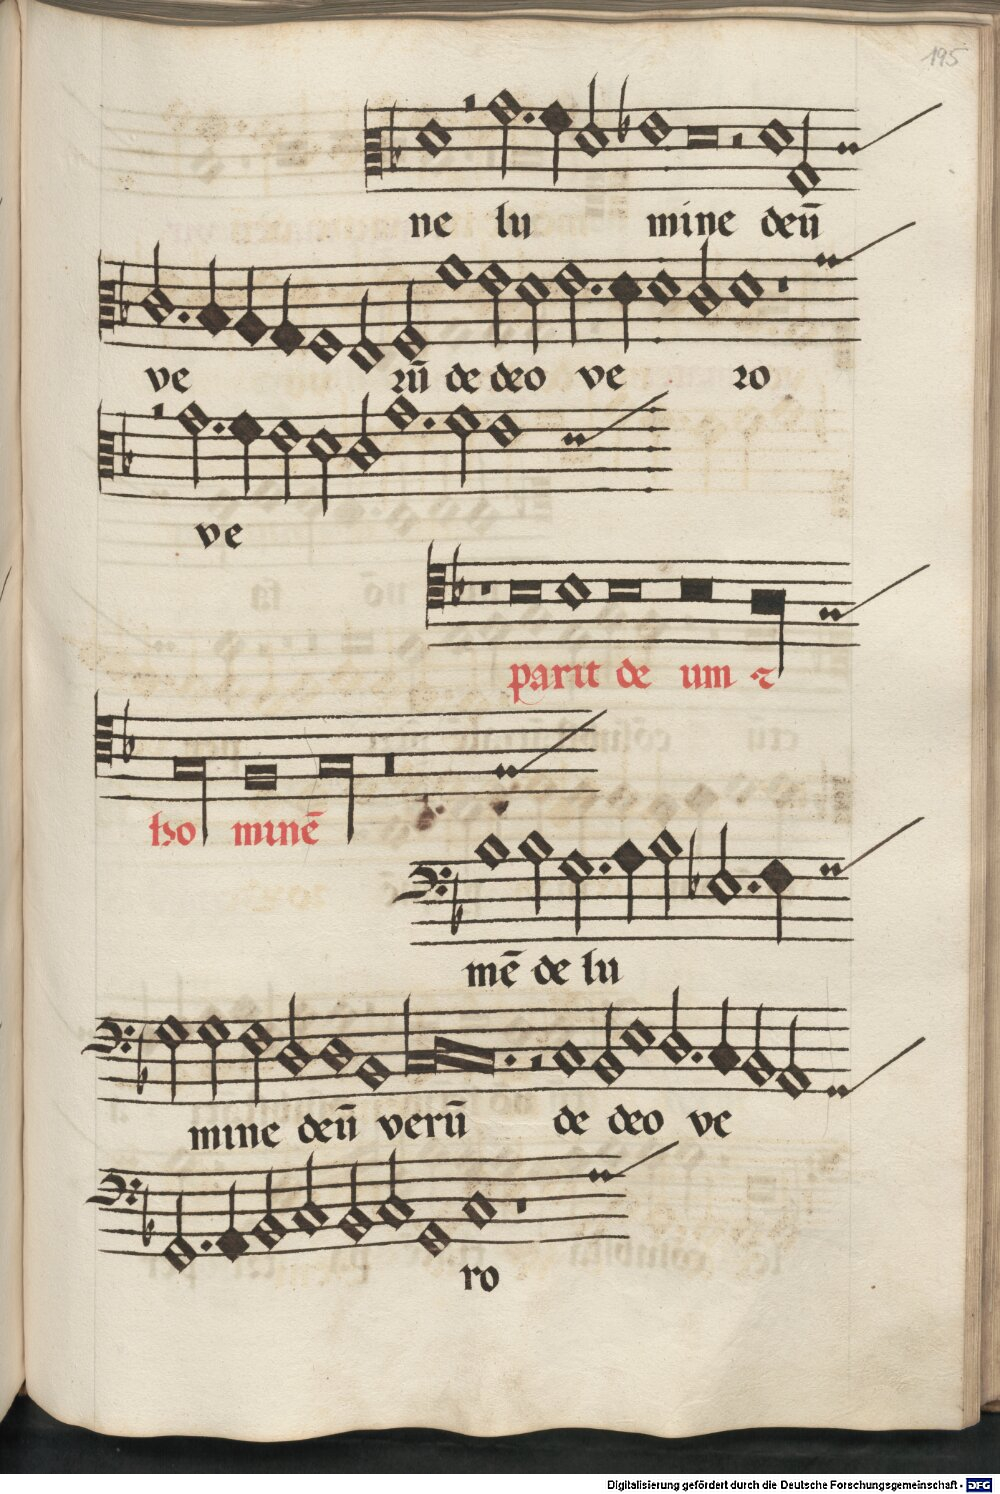 195
ne lu mine deū
ve rū de deo ve ro
ve
parit de um ⁊
ho minē
mē de lu
mine deū verū de deo ve
ro
Digitalisierung gefördert durch die Deutsche Forschungsgemeinschaft - DFG